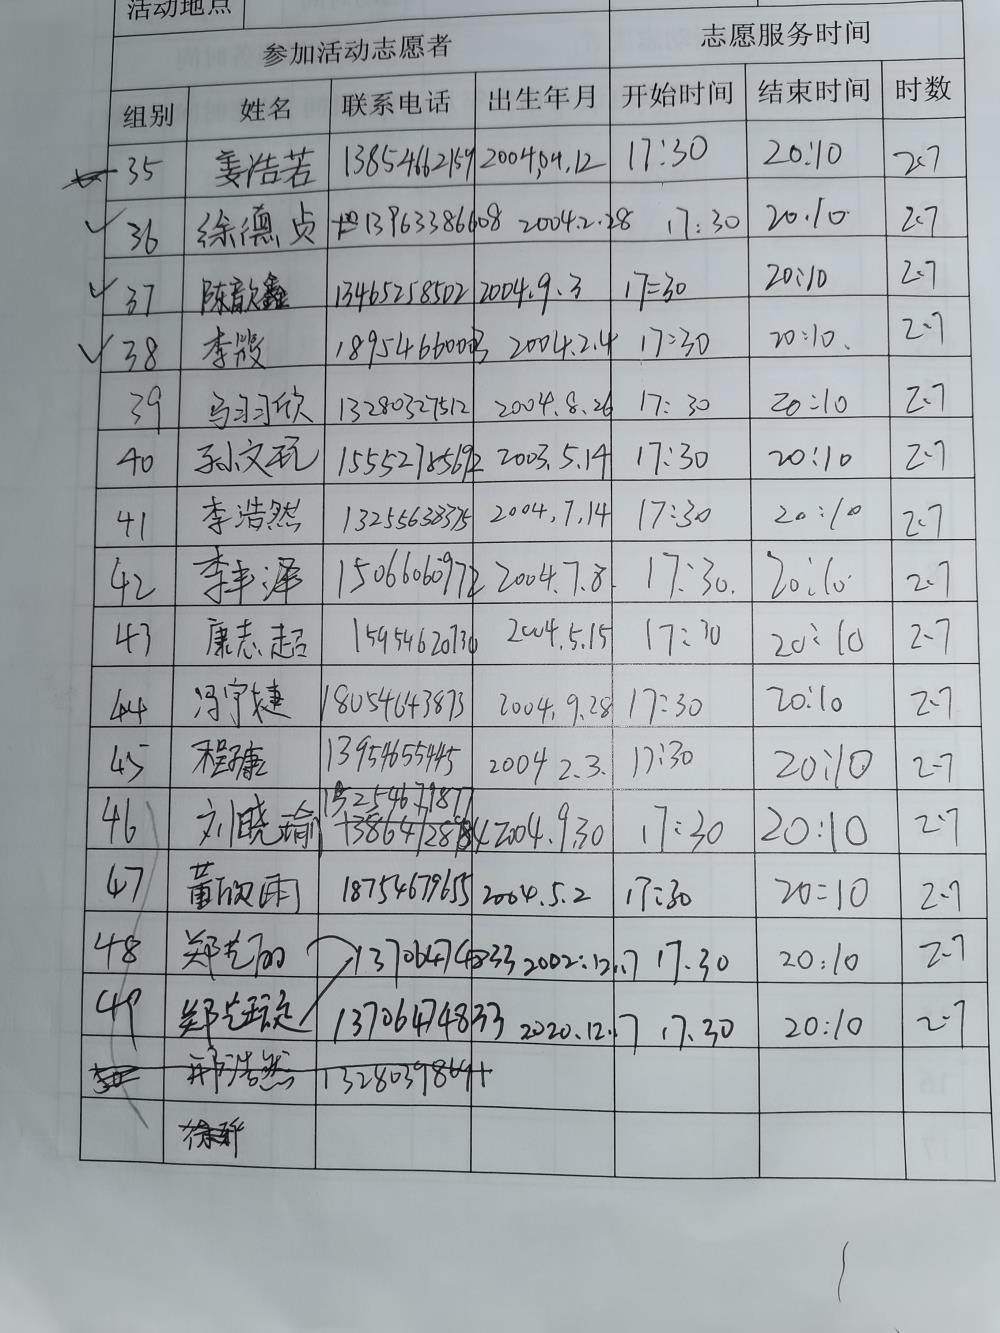 活动地点
参加活动志愿者 志愿服务时间
组别 姓名 联系电话 出生年月 开始时间 结束时间 时数
35 姜浩若 13854662159 2004.04.12 17:30 20:10 2.7
36 徐德贞 13963386608 2004.2.28 17:30 20.10 2.7
37 陈歆鑫 13465258502 2004.9.3 17:30 20:10 2.7
38 李 18954660003 2004.2.4 17:30 20:10. 2.7
39 马习习欣 13280327512 2004.8.26 17:30 20:10 2.7
40 孙文 15552785692 2003.5.14 17:30 20:10 2.7
41 李浩然 13255638375 2004.7.14 17:30 20:10 2.7
42 李丰泽 15066060972 2004.7.8. 17:30. 20:10. 2.7
43 康志超 15954620730 2004.5.15 17:30 20:10 2.7
44 冯宇捷 18054643873 2004.9.28 17:30 20:10 2.7
45 程康 13954655445 2004 2.3. 17:30 20:10 2.7
46 刘晓瑜 15254679877 2004.9.30 17:30 20:10 2.7
47 董欣雨 18754679655 2004.5.2 17:30 20:10 2.7
48 郑艺 13706474833 2002.12.7 17.30 20:10 2.7
49 郑艺璇 13706474833 2020.12.7 17.30 20:10 2.7
50 邢浩然
徐